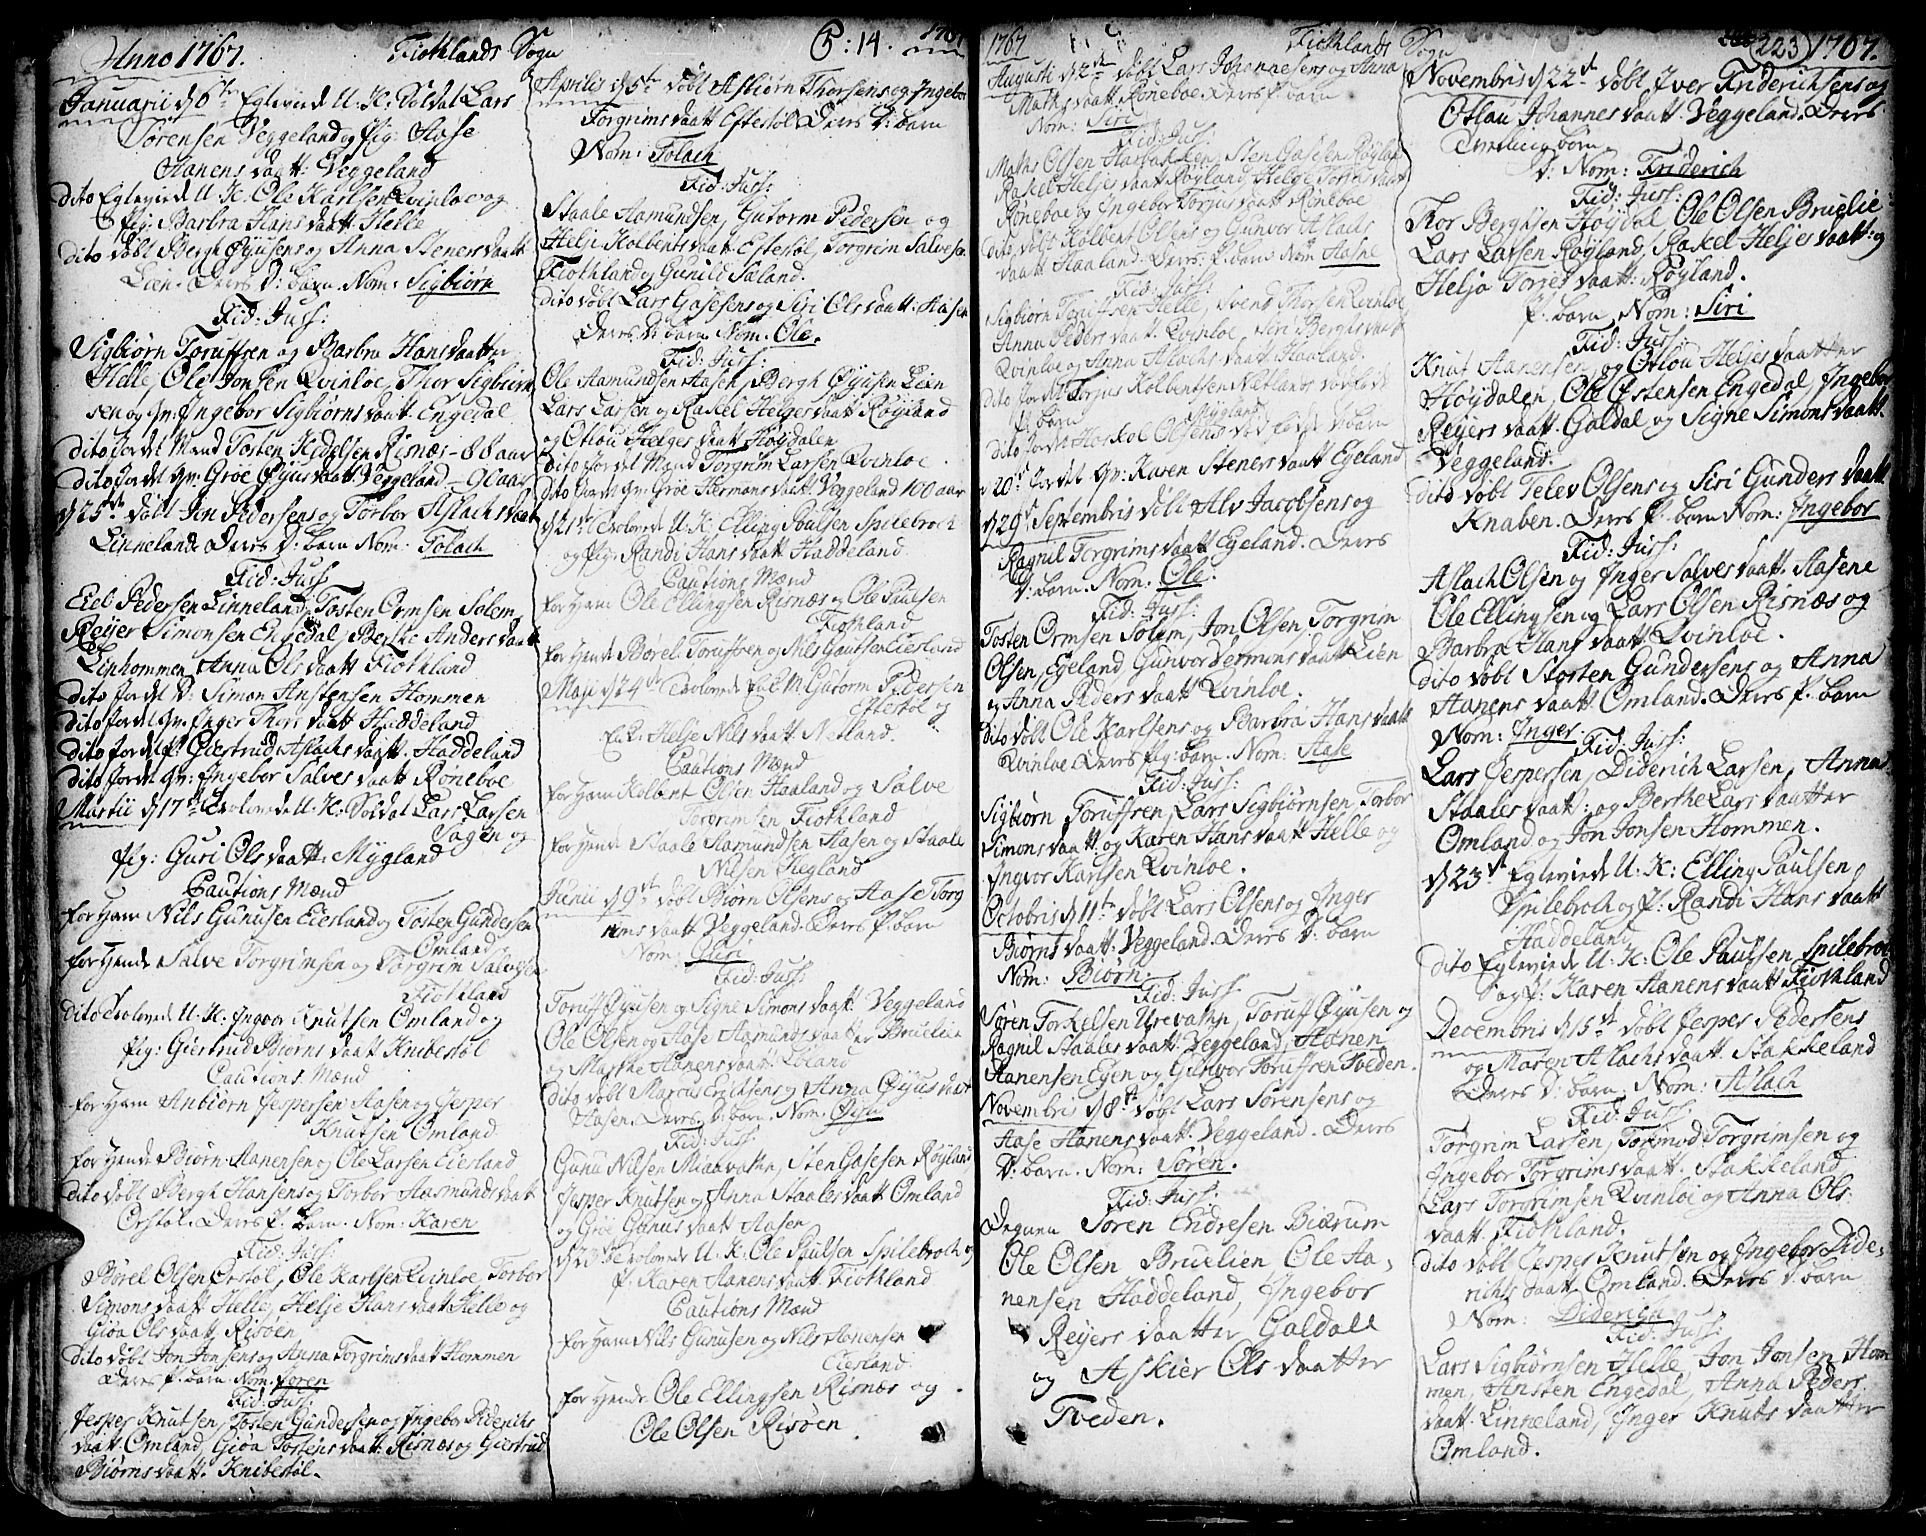 Anno 1767. Fiothlands Sogn
Januarii d 6te Egteviede U: K: Soldat Lars
Sørensen Veggeland og Pig: Aase
Aanens daatt: Veggeland
dito Egteviede U: K: Ole Karlsen Qvinloe og
Pig: Barbra Hans daatt Helle
dito døbt Bergh Øyusens og Anna Steners daatt
Lien. Deres D: barn. Nom: Sigbiørn
Fid: Juss:
Sigbiørn Toruffsen og Barbra Hans daatter
Helle, Ole Jonsen Qvinloe, Thor Sigbiørn
sen og Qv: Ingebor Sigbiørns daatt. Engedal
dito for det Mand Tosten Kedelsen Risnæs - 88 aar
dito for det Qv: Groe Øyus daatt Veggeland - 90 aar
d 25de døbt Jon Pedersens og Torbor Aslachs daatt
Linneland. Deres D: barn Nom: Tolach
Fid: Juss
Eel Pedersen Linneland, Tosten Ormsen Solem
Reyer Simonsen Engedal, Berthe Anders daatt
Linhommen, Anna Ols daatt Fiothland
dito for det D: Simon Anstensen Hommen
dito for det Qv: Inger Thors daatt Haddeland
dito for det P: Giertrud Aslachs daatt. Haddeland
dito for det Qv: Ingebor Salves daatt Roneboe
Martii d 17de Trolovede U: K: Soldat Lars Larsen
Sagen og
Pig: Guri Ols daatt. Mygland
Cautions Mænd
For Ham Nils Gunusen Eiersland og Tosten Gundersen
Omland
for Hende Salve Torgrimsen og Torgrim Salvesen
Fiothland
dito Trolovede U: K: Ingvor Knutsen Omland og
Pig: Giertrud Biørns daatt Knibestøl
Cautions Mænd
for Ham Anbiørn Jespersen Aasen og Jesper
Knutsen Omland
for Hende Biørn Aanensen og Ole Larsen Eiersland
dito døbt Bergh Hansens og Torbor Aasmunds daatt
Ørstøl. Deres P: barn. Nom: Karen
Fid: Juss:
Børel Olsen Ørstøl, Ole Karlsen Qvinloe, Torbor
Simons daatt Helle, Helje Hans daatt Helle og
Gioa Ols daatt Risøen
dito døbt Jon Jonsens og Anna Torgrims daatt Hommen
Deres P: barn Nom: Søren
Fid: Juss:
Jesper Knutsen, Tosten Gundersen og Ingebor Diderichs
daatt Omland, Gioa Tostens daatt: Risnæs og Giertrud
Biørns daatt. Knibestøl.
P: 14. 1767
Aprilis d 5te døbt Asbiørn Thorsens og Ingebor
Torgrims daatt Eftestøl Deres D: barn
Nom: Tolach
Fid: Juss:
Staale Aamundsen, Gutorm Pedersen og
Helje Kolbents daatt Eftestøl, Torgrim Salvesen
Fiothland og Gunild Sæland.
dito døbt Lars Gasesens og Siri Ols daatt: Aasen
Deres D: barn Nom. Ole.
Fid: Juss:
Ole Aamundsen Aasen, Bergh Øyusen Lien
Lars Larsen og Rakel Helges daatt Røyland
og Otlou Helges daatt Høydalen
dito for det Mand Torgrim Larsen Qvinloe
dito for det Qv: Groe Hermans daatt: Veggeland 100 aar
d 21de Trolovede U: K: Elling Poulsen Spilebroch
og Pig: Randi Hans daatt Haddeland
Cautions Mænd
for Ham Ole Ellingsen Risnæs og Ole Paulsen
Fiothland
for Hende Børel Toruffsen og Nils Gautsen Eiersland
Maji d 24de Trolovede Enk. M Gutorm Pedersen
Eftestøl og
Enk: Helje Nils daatt Netland.
Cautions Mænd
for Ham Kolbent Olsen Haaland og Salve
Torgrimsen Fiothland
for Hende Staale Aamundsen Aasen og Staale
Nilsen Fiegland
Junii d 9de døbt Biørn Olsens og Aase Torg
rims daatt Veggeland. Deres P: barn
Nom: Siri
Fid: Juss:
Toruff Øyusen og Signe Simons daatt Veggeland
Ole Olsen og Aase Aamunds daatter Bruelien
og Marthe Aanens daatt. Eoland
dito døbt Marcus Erichsens og Anna Øyus daatt
Aasen. Deres D: barn. Nom: Øiyu
Fid: Juss:
Gunu Nilsen Miaavatn, Sten Gasesen Røyland
Jesper Knutsen og Anna Staales daatt Omland
og Groe Gunus daatt Aasen
d 23de Trolovede U: K: Ole Paulsen Spilebroch og
P: Karen Aanens daatt: Fiothland
Cautions Mænd
for Ham Nils Gunusen og Nils Aanensen
Eiersland
for Hende Ole Ellingsen Risnæs og
Ole Olsen Risøen
1767 Fiothlands Sogn
Augusti d 2de døbt Lars Johannesens og Anna
Maths daatt Roneboe. Deres P: barn
Nom: Siri
Fid: Juss:
Maths Olsen Haabakken, Sten Gasesen Røyland
Rakel Heljes daatt Røyland, Helge Torjus daatt
Roneboe og Ingebor Torjus daatt Roneboe
dito døbt Kolbent Olsens og Gunvor Aslachs
daatt Haaland. Deres P: barn Nom Aasne
Fid: Juss:
Sigbiørn Toruffsen Helle, Svend Thorsen Qvinloe
Anna Peders daatt. Qvinloe, Siri Berghs daatt
Qvinloe og Anna Aslachs daatt. Haaland
dito for det Torjus Kolbentsen Netlands
P: barn
Mygland
dito for det Haskol Olsens D: barn
d 20de for det Qv: Karen Steners daatt Egeland
d 29de Septembris døbt Alv Jacobsens og
Ragnil Torgrims daatt Egeland. Deres
D: barn. Nom: Ole.
Fid: Juss:
Tosten Ormsen Solem, Jon Olsen, Torgrim
Olsen, Egeland, Gunvor Vermuns daatt Lien
og Anna Peders daatt Qvinloe.
dito døbt Ole Karlsens og Barbra Hans daatt
Qvinloe. Deres Pig: barn. Nom: Aase
Fid: Juss:
Sigbiørn Toruffsen, Lars Sigbiørnsen, Torbor
Simons daatt og Karen Hans daatt Helle og
Ingvor Karlsen Qvinloe.
Octobris d 11te døbt Lars Olsens og Inger
Biørns daatt: Veggeland. Deres D: barn
Nom: Biørn.
Fid: Juss:
Søren Torkelsen Urevatn, Toruff Øyusen og
Ragnil Staales daatt. Veggeland, Aanen
Aanensen Egen og Gunvor Toruffsen Tveden.
Novembris d 8de døbt Lars Sørensens og
Aase Aanens daatt. Veggeland. Deres
D: barn. Nom: Søren.
Fid: Juss:
Degnen Søren Endresen Biærum
Ole Olsen Bruelien Ole Aa,
nensen Haddeland, Ingebor
Reyers daatter Galdall
og Askier Ols daatter
Tveden.
223 1767.
Novembris d 22de døbt Iver Friderichsens og
Otlau Johannes daatt. Veggeland. Deres
Tvilling børn.
D: Nom: Friderich
Fid: Juss:
Thor Berghsen Høydal, Ole Olsen Bruelie
Lars Larsen Røyland, Rakel Heljes daatt: og
Helje Torjes daatt: Røyland.
P: barn, Nom: Siri
Fid: Juss:
Knut Aanensen og Otlou Heljes daatter
Høydalen, Ole Østensen Engedal, Ingebor
Reyers daatt: Galdal og Signe Simons daatt.
Veggeland.
dito døbt Telev Olsens og Siri Gunders daatt
Knaben. Deres P. barn Nom: Ingebor
Fid: Juss:
Aslach Olsen og Inger Salves daatt. Aasene
Ole Ellingsen og Lars Olsen Risnæs og
Barbra Hans daatt Qvinloe.
dito døbt Stosten Gundersens og Anna
Aanens daatt. Omland. Deres P. barn
Nom: Inger
Fid: Juss:
Lars Jespersen, Diderich Larsen, Anna
Staales daatt: og Berthe Lars daatter
Omland og Jon Jonsen Hommen.
d 23de Egteviede U: K: Elling Paulsen
Spilebroch og P: Randi Hans daatt
Haddeland
dito Egteviede U: K: Ole Paulsen Spilebroch
og P: Karen Aanens daatt Fiothland
Decembris d 15de døbt Jesper Pedersens
og Maren Aslachs daatt. Stakkeland
Deres D: barn. Nom: Aslach
Fid: Juss:
Torgrim Larsen, Tormod Torgrimsen og
Ingebor Torgrims daatt. Stakkeland
Lars Torgrimsen Qvinloe og Anna Ols
daatt. Fiothland.
dito døbt Jesper Knutsen og Ingebor Dide,
richs daatt Omland. Deres D: barn
Nom: Diderich
Fid: Juss:
Lars Sigbiørnsen Helle, Jon Jonsen Hom
men, Ansten Engedal, Anna Peders
daatt. Linneland, Inger Knuts daatter
Omland.